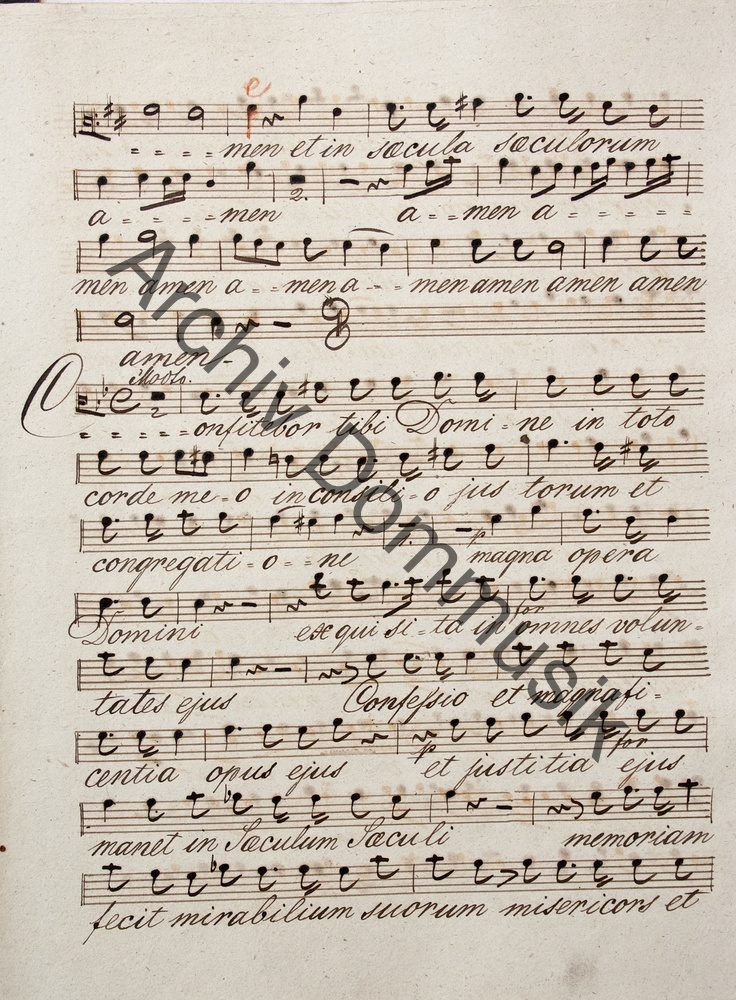 e
men et in sæcula sæculorum
2.
a - - - - men a - - men a - - - - - -
men amen a - - men a - - men amen amen amen amen
amen -
Modto.
Confitebor tibi Domi = ne in toto
corde me = o in consili = o jus torum et
congregati = o - = ne magna opera
p
Domini exqui si = ta in omnes volun =
for
tates ejus Confessio et magnafi =
centia opus ejus et justitia ejus
p for
manet in Sæculum Sæculi memoriam
fecit mirabilium suorum misericors et
Archiv Dommusik